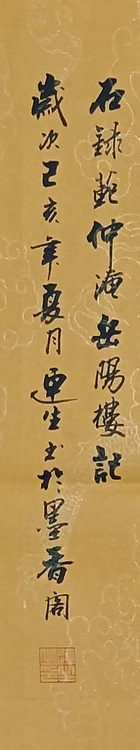 右錄范仲淹岳陽樓記
歲次己亥年夏月連生书於墨香阁